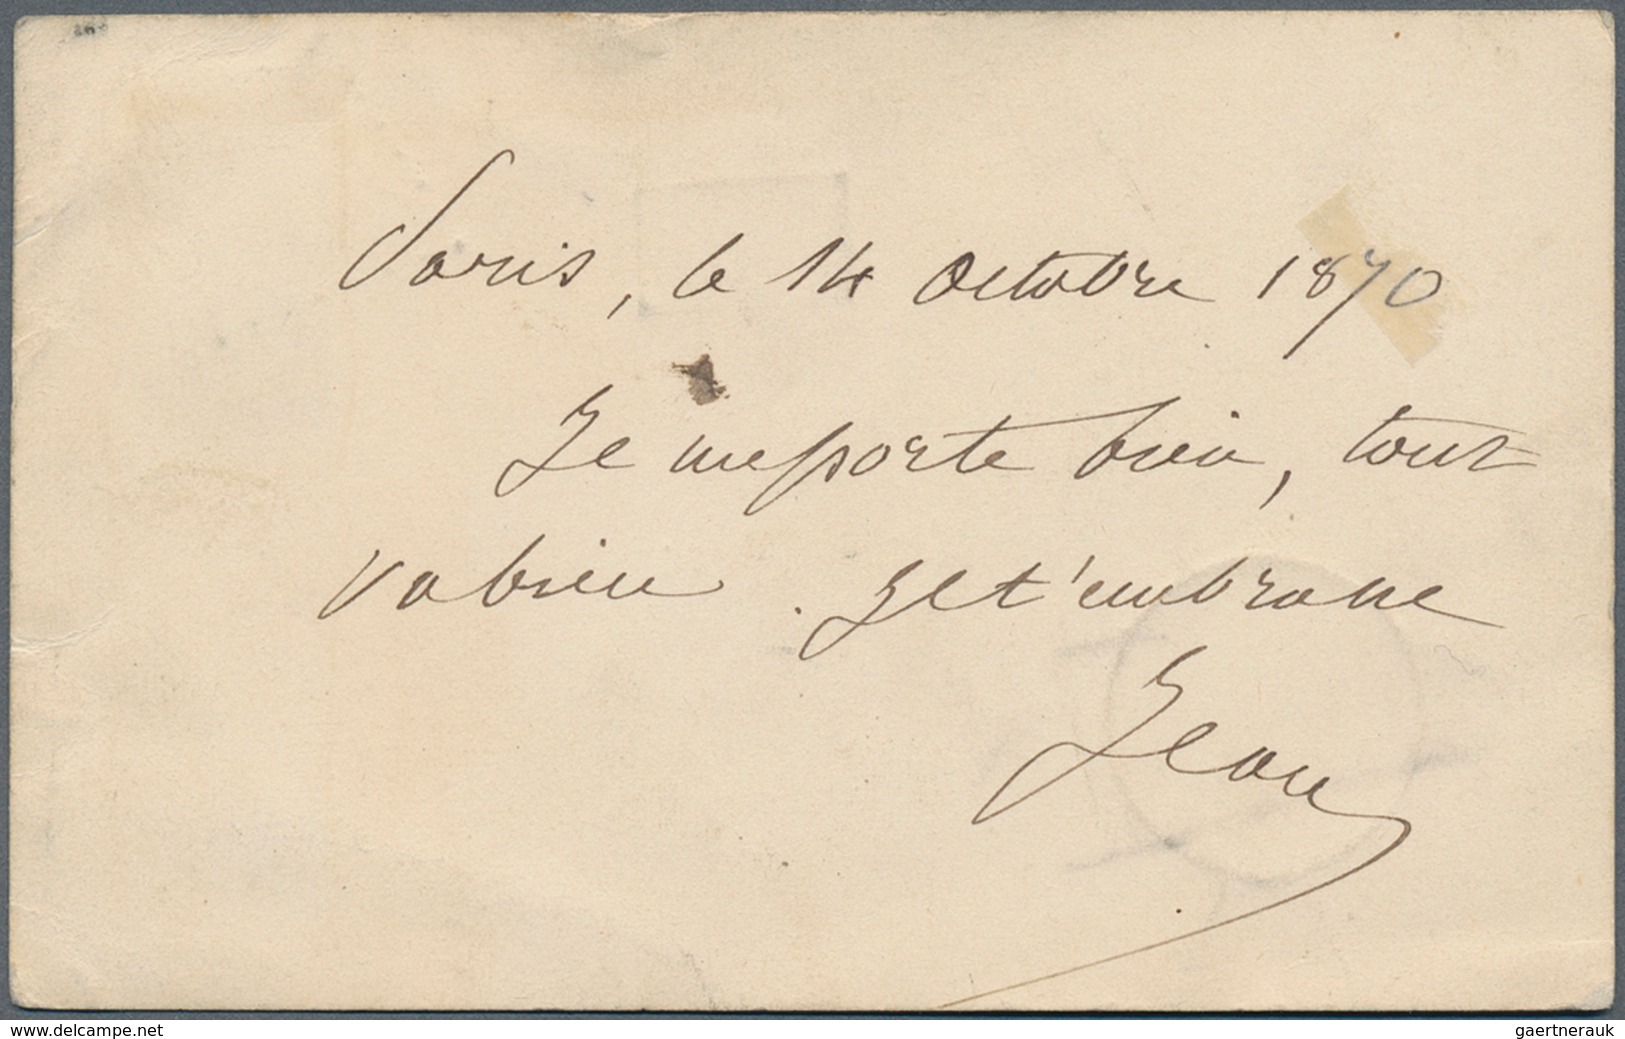 Paris, le 14 Octobre 1870
Je me porte bien, tout
va bien. Je t'embrasse
Jean
www.delcampe.net
gaertnerauk